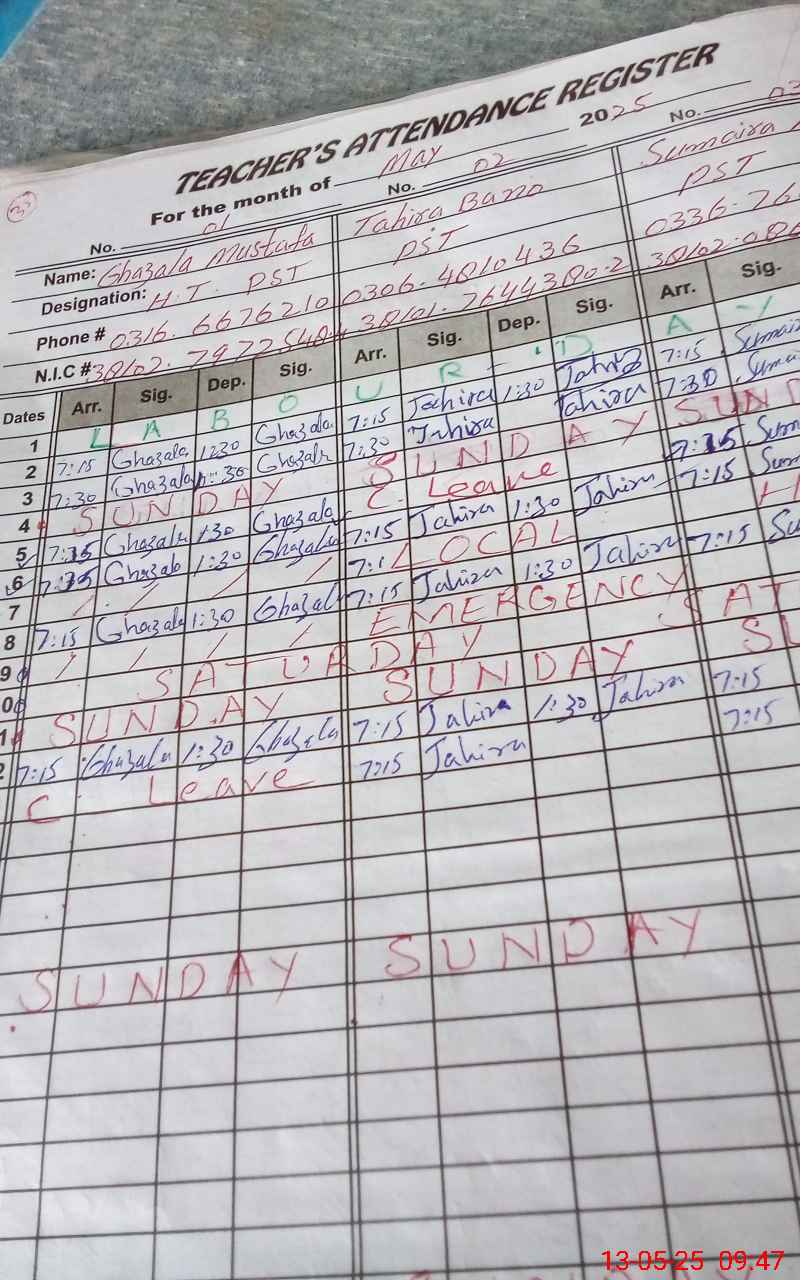 TEACHER'S ATTENDANCE REGISTER
For the month of May 2025
No. 01 No. 02 No. 03
Name: Ghazala Mustafa Tahira Bano Sumaira
Designation: H.T. PST PST PST
Phone # 0316. 6676210 0306. 4810436 0336-76
N.I.C #
Dates Arr. Sig. Dep. Sig. Arr. Sig. Dep. Sig. Arr. Sig.
1 L A B O U R D A Y
2 7:15 Ghazala 1230 Ghazala 7:15 Tahira 1:30 Tahira 7:15 Sumaira
3 7:30 Ghazala Ghazala 7:30 Tahira Tahira 7:30 Sumai
4 SUNDAY SUNDAY SUND
5 7:15 Ghazala 1:30 Ghazala C. Leave 7:15 Sum
6 7:15 Ghazala 1:30 Ghazala 7:15 Tahira 1:30 Tahira 7:15 Sum
7 / / / / 7:1 LOCAL H
8 7:15 Ghazala 1:30 Ghazala 7:15 Tahira 1:30 Tahira 7:15 Su
9 / / / / EMERGENCY
0 SATURDAY SAT
1 SUNDAY SUNDAY SU
2 7:15 Ghazala 1:30 Ghazala 7:15 Tahira 1:30 Tahira 7:15
C Leave 7:15 Tahira 7:15
SUNDAY SUNDAY
13-05-25 09.47